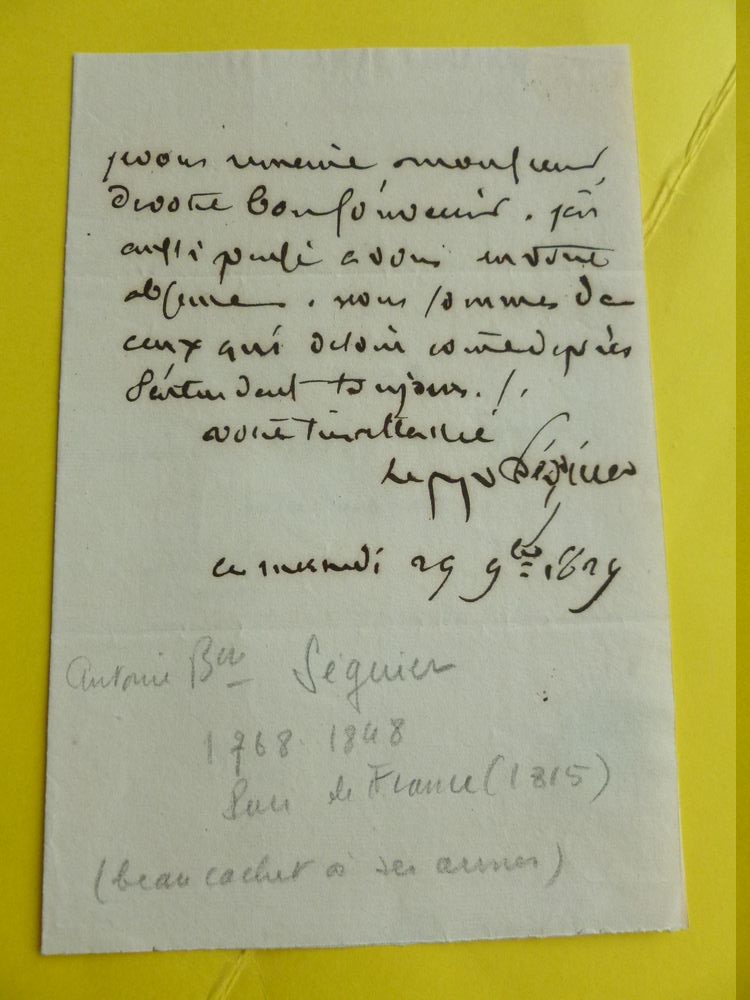 je vous remercie, monsieur,
de votre bon souvenir. j'ai
aussi pensé a vous en votre
absence. nous sommes de
ceux qui de loin come de près
s'entendent toujours./.
votre tres attaché
le Séguier
ce 29 9bre 1829
Antoine Bon Séguier
1768. 1848
Pair de France (1815)
(beau cachet à ses armes)